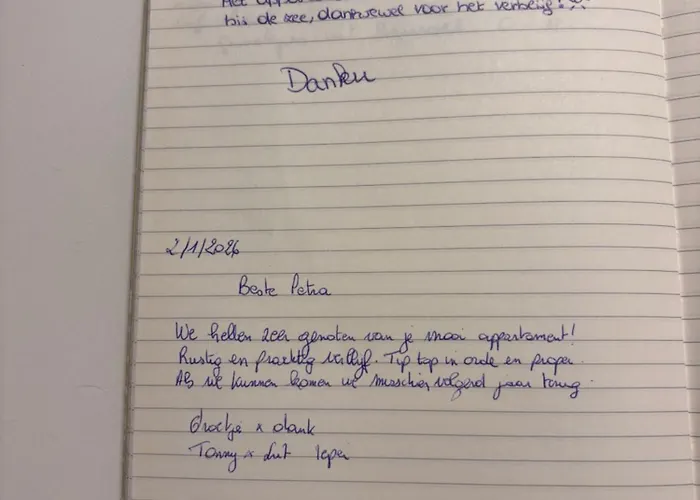 Het appa
bij de zee, dankjewel voor het verblijf!
Danku
2/1/2026
Beste Petra
We hebben zeer genoten van je mooi appartement!
Rustig en prachtig verblijf. Tip top in orde en proper.
Als we kunnen komen we misschien volgend jaar terug.
Groetjes x dank
Tonny x Lut Ieper